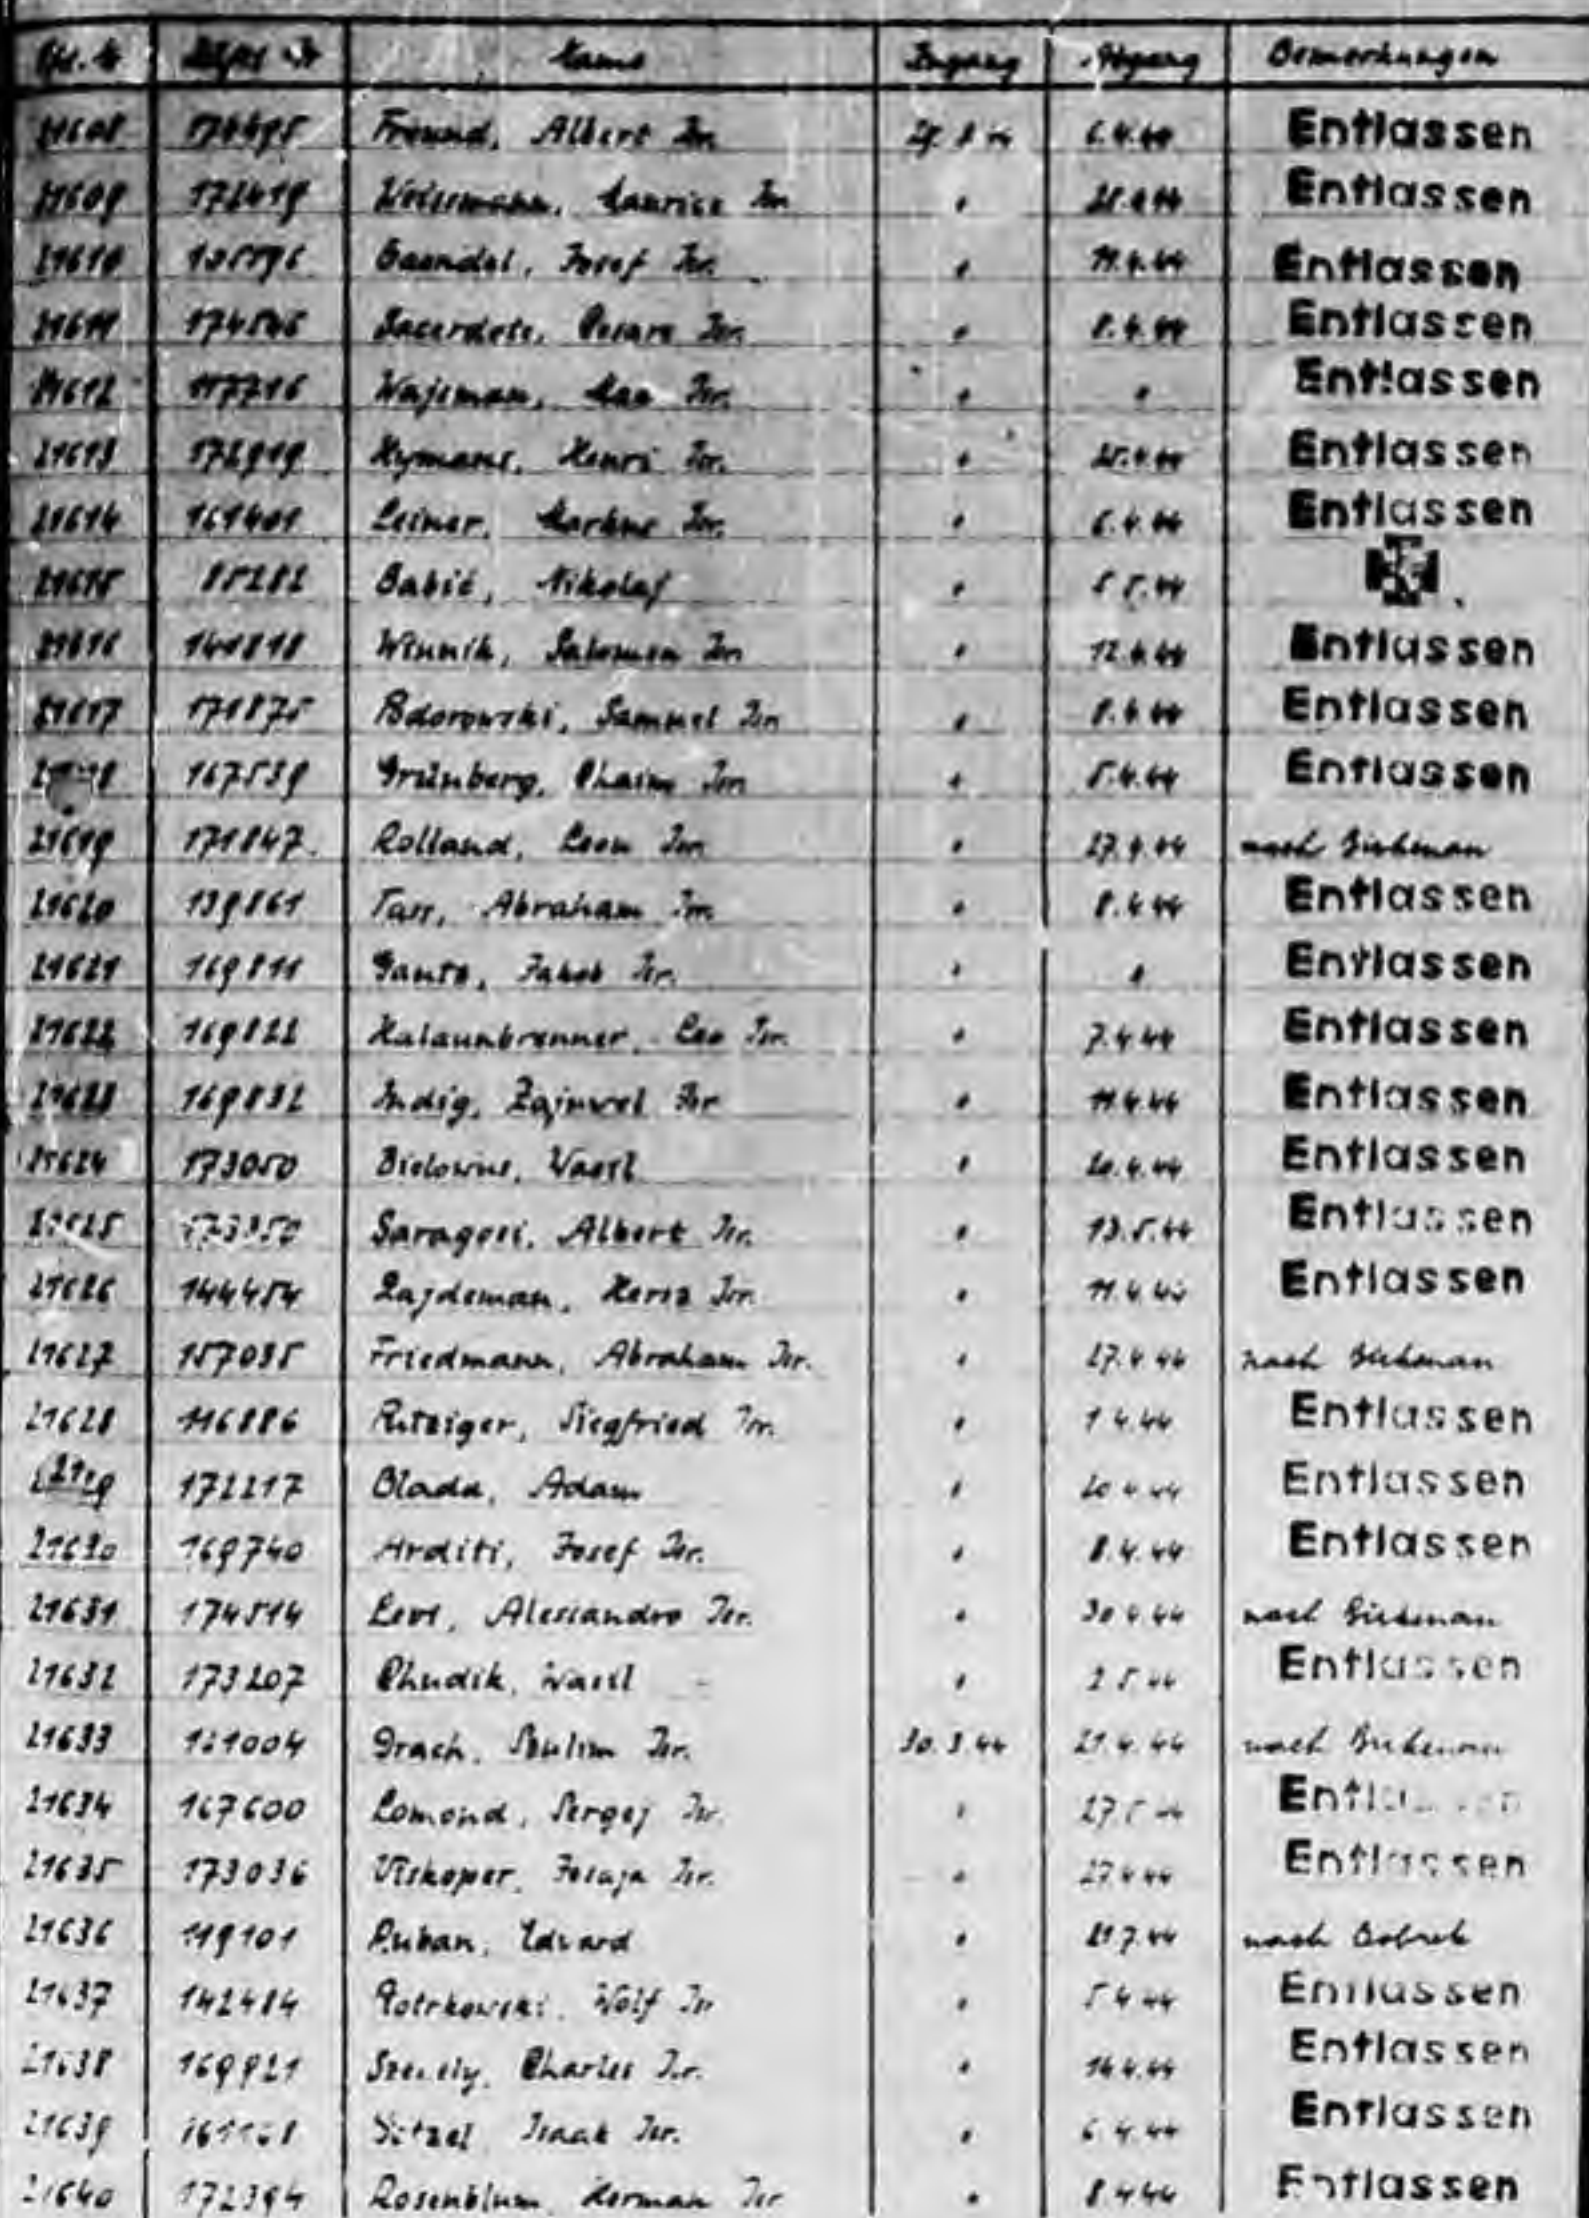 Lfd. Nr Häftl. Nr Name Zugang Abgang Bemerkungen
21608 Freund, Albert Isr. 6.4.44 Entlassen
21609 172419 Isr. " Entlassen
21610 Josef Isr. " 11.4.44 Entlassen
21611 Sacerdote, Cesare Isr. " 8.4.44 Entlassen
21612 117716 Wajsman, Max Isr. " " Entlassen
21613 172919 Hymans, Henri Isr. " Entlassen
21614 161401 Leiner, Markus Isr. " 6.4.44 Entlassen
21615 85282 Babić, Nikolaj " 5.5.44
21616 Winnik, Salomon Isr. " 12.4.44 Entlassen
21617 171875 Bdorowski, Samuel Isr. " 8.4.44 Entlassen
167539 Grünberg, Chaim Isr. " 5.4.44 Entlassen
21619 171847 Rolland, Leon Isr. " 27.4.44 nach Birkenau
21620 139861 Abraham Isr. " 8.4.44 Entlassen
21621 169811 Jakob Isr. " " Entlassen
21622 169822 Halaunbrenner, Leo Isr. " 7.4.44 Entlassen
21623 169832 Indig, Zajnwel Isr. " 11.4.44 Entlassen
21624 173050 Wasil " 20.4.44 Entlassen
21625 Saragosi, Albert Isr. " 13.5.44 Entlassen
21626 144454 Zajdeman, Hersz Isr. " 11.4.44 Entlassen
21627 157035 Friedmann, Abraham Isr. " 27.4.44 nach Birkenau
21628 116886 Siegfried Isr. " 1.4.44 Entlassen
172217 Blada, Adam " 20.4.44 Entlassen
21630 169740 Arditi, Josef Isr. " 8.4.44 Entlassen
21631 174514 Levi, Alessandro Isr. " 30.4.44 nach Birkenau
21632 173207 Chudik, Wasil " 2.5.44 Entlassen
21633 121004 Drach, Szulim Isr. 30.3.44 21.4.44 nach Birkenau
21634 167600 Lomond, Sergej Isr. " 27.5.44 Entlassen
21635 173036 Viskoper, Jesaja Isr. " 27.4.44 Entlassen
21636 119101 Edward " 21.7.44 nach Bobrek
21637 142484 Potrkowski, Wolf Isr. " 5.4.44 Entlassen
21638 169921 Charles Isr. " 14.4.44 Entlassen
21639 Isaak Isr. " 6.4.44 Entlassen
21640 172394 Rosenblum, Herman Isr. " 8.4.44 Entlassen